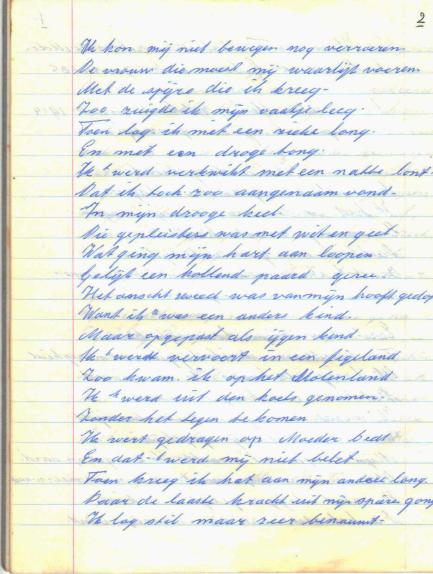 2
Ik kon mij niet bewegen nog verroeren.
De vrouw die moest mij waarlijk voeren.
Met de die ik kreeg-
Zoo zuigde ik mijn vaatje leeg.
Toen lag ik met een zieke long.
En met een droge tong.
Ik werd verkwikt met een natte
Dat ik toch zoo aangenaam vond-
In mijn drooge keel.
Die gepleisterd was met wit en geel
Wat ging mijn hart aan loopen
Gelijk een hollend paard
Het was van mijn hooft
Want ik was een anders kind.
Maar opgepast als ijgen kend
Ik werdt vervoort in een
Zoo kwam ik op het Molenland
Ik werd uit den koets genomen.
Zonder het tegen te komen
Ik wert gedragen op Moeder bedt
En dat werd mij niet belet
Toen kreeg ik het aan mijn andere long.
Daar de laaste kracht uit mijn
Ik lag stil maar zeer benauwt-